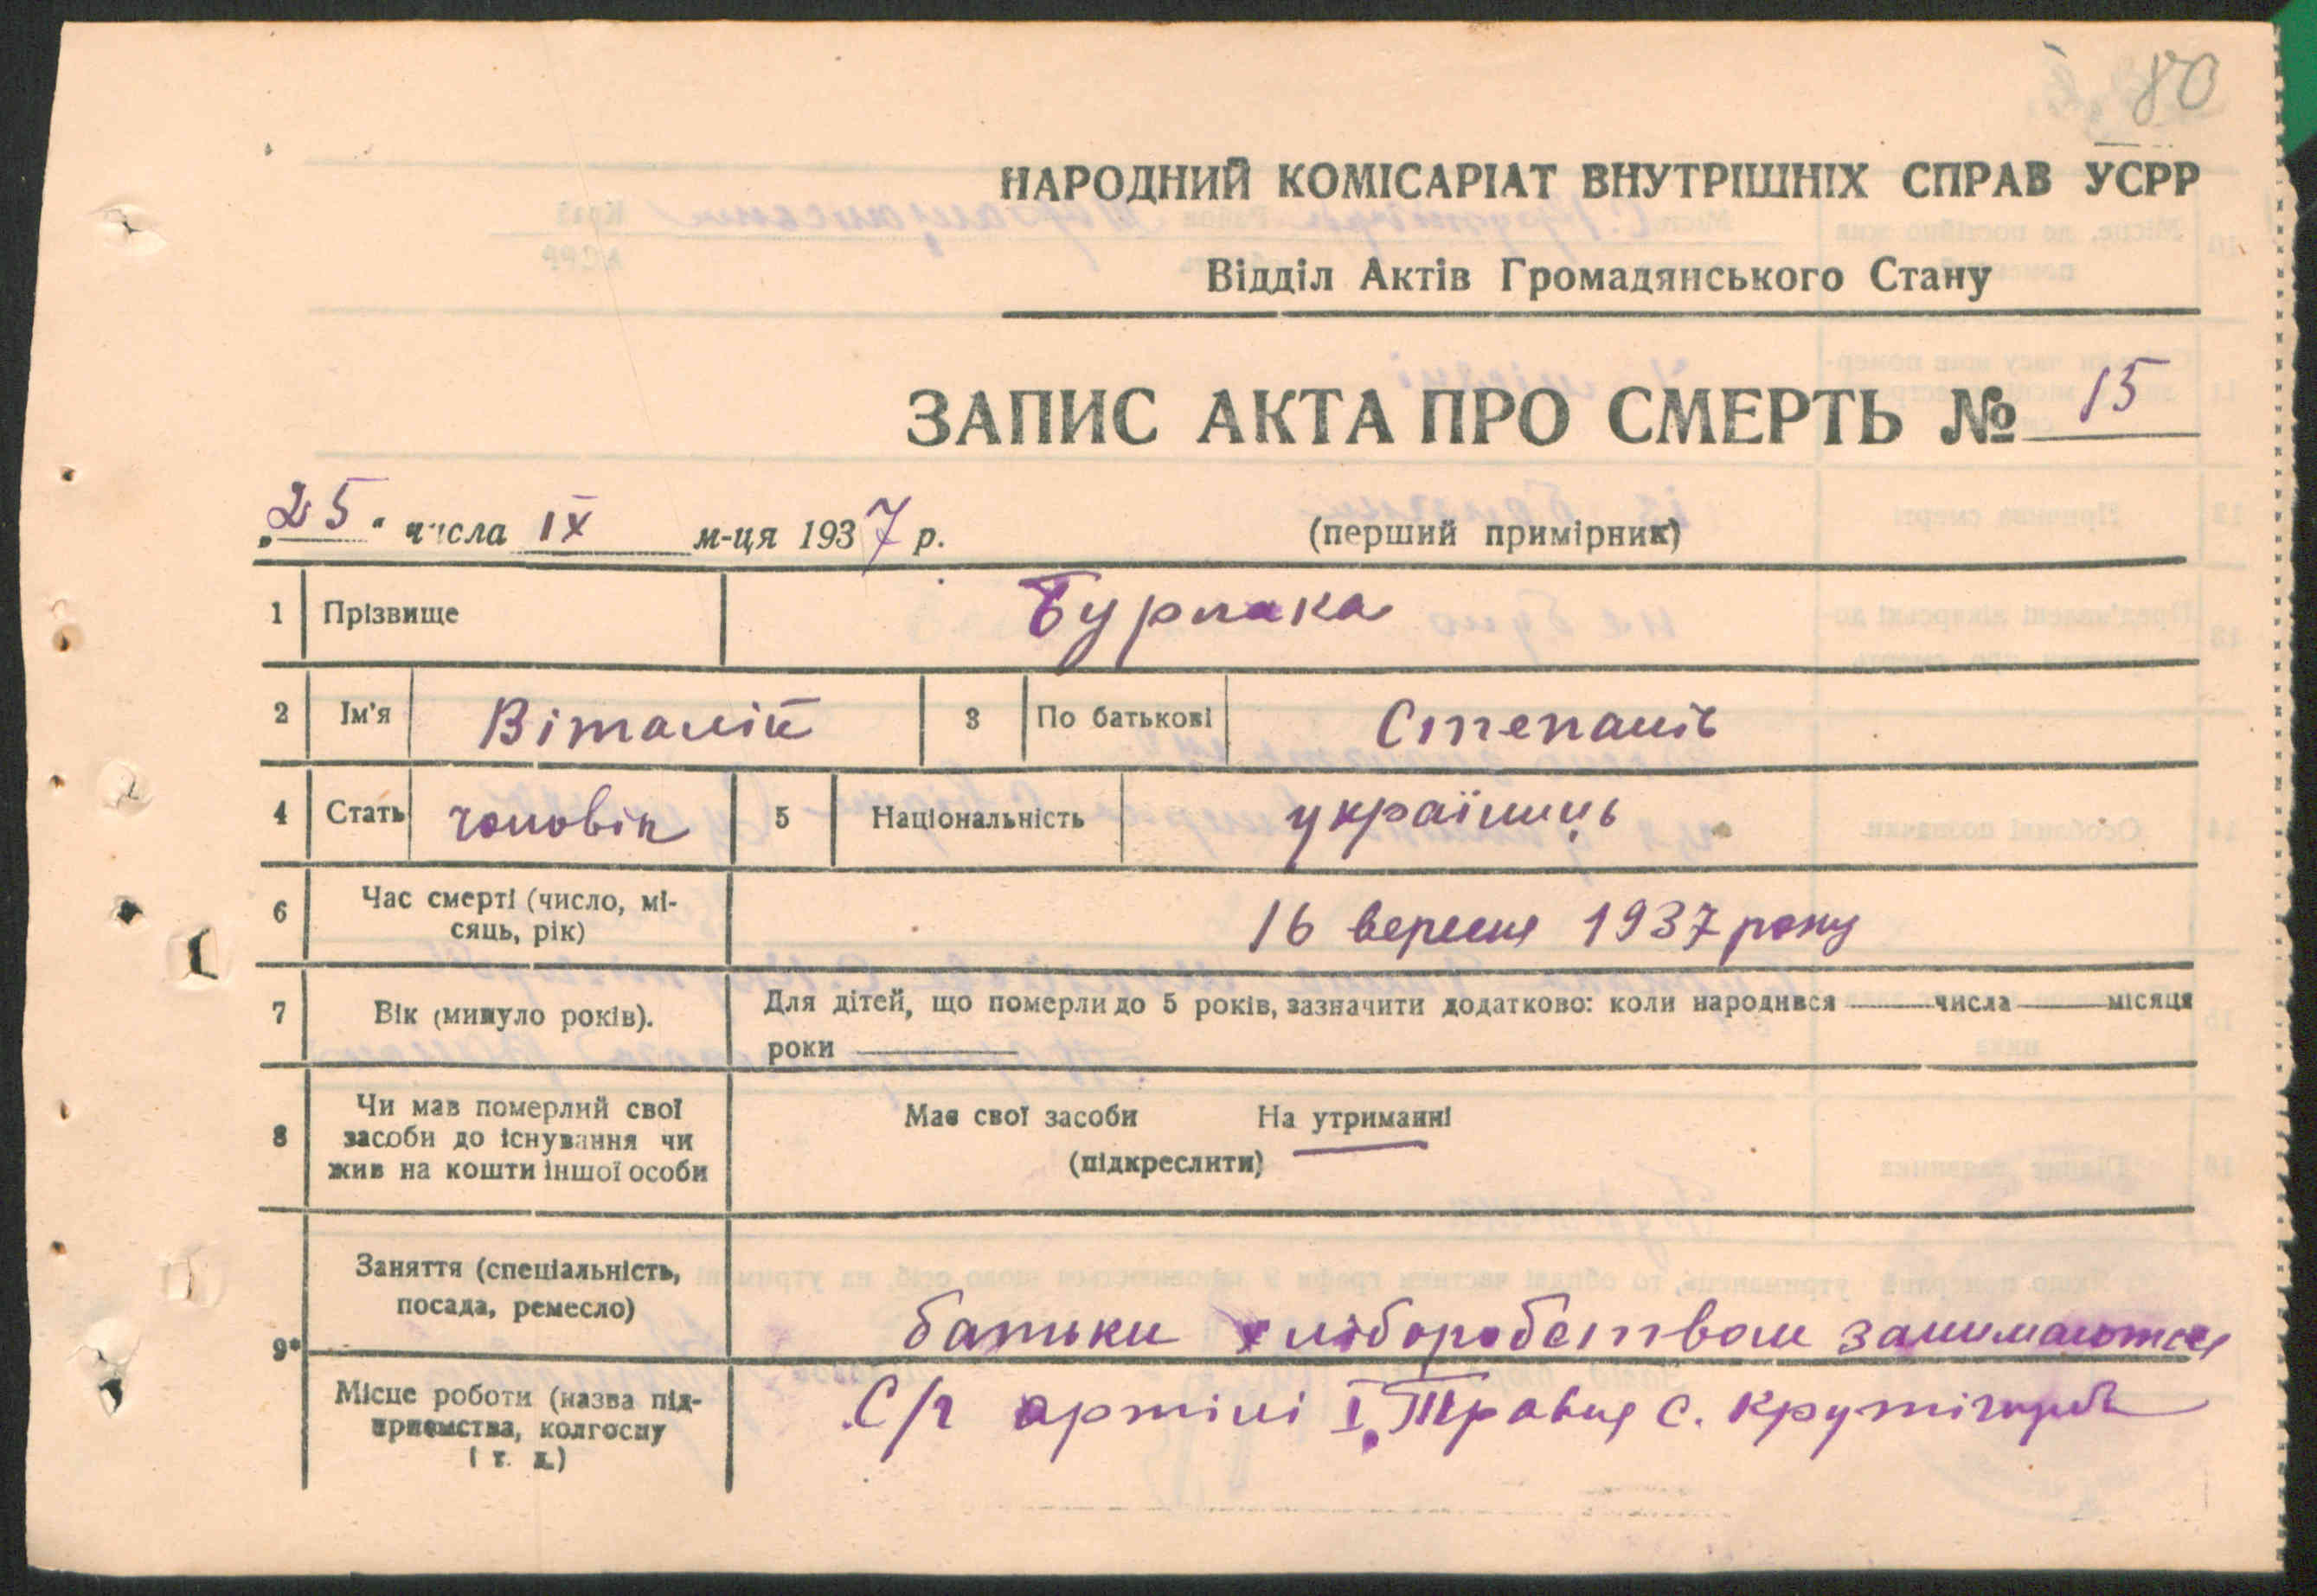 80
НАРОДНИЙ КОМІСАРІАТ ВНУТРІШНІХ СПРАВ УСРР
Відділ Актів Громадянського Стану
ЗАПИС АКТА ПРО СМЕРТЬ № 15
„25“ числа IX м-ця 1937 р. (перший примірник)
1 Прізвище Бурлака
2 Ім'я Віталій 3 По батькові Степанів
4 Стать чоловік 5 Національність українець
6 Час смерті (число, мі-
сяць, рік) 16 вересня 1937 року
7 Вік (минуло років). Для дітей, що померли до 5 років, зазначити додатково: коли народився числа місяця
роки
8 Чи мав померлий свої
засоби до існування чи
жив на кошти іншої особи
Має свої засоби На утриманні
(підкреслити)
9* Заняття (спеціальність,
посада, ремесло) батьки хліборобством занимаются
Місце роботи (назва під-
приємства, колгоспу
і т. д.) С/г артілі 1 Травня с. Крутігорб